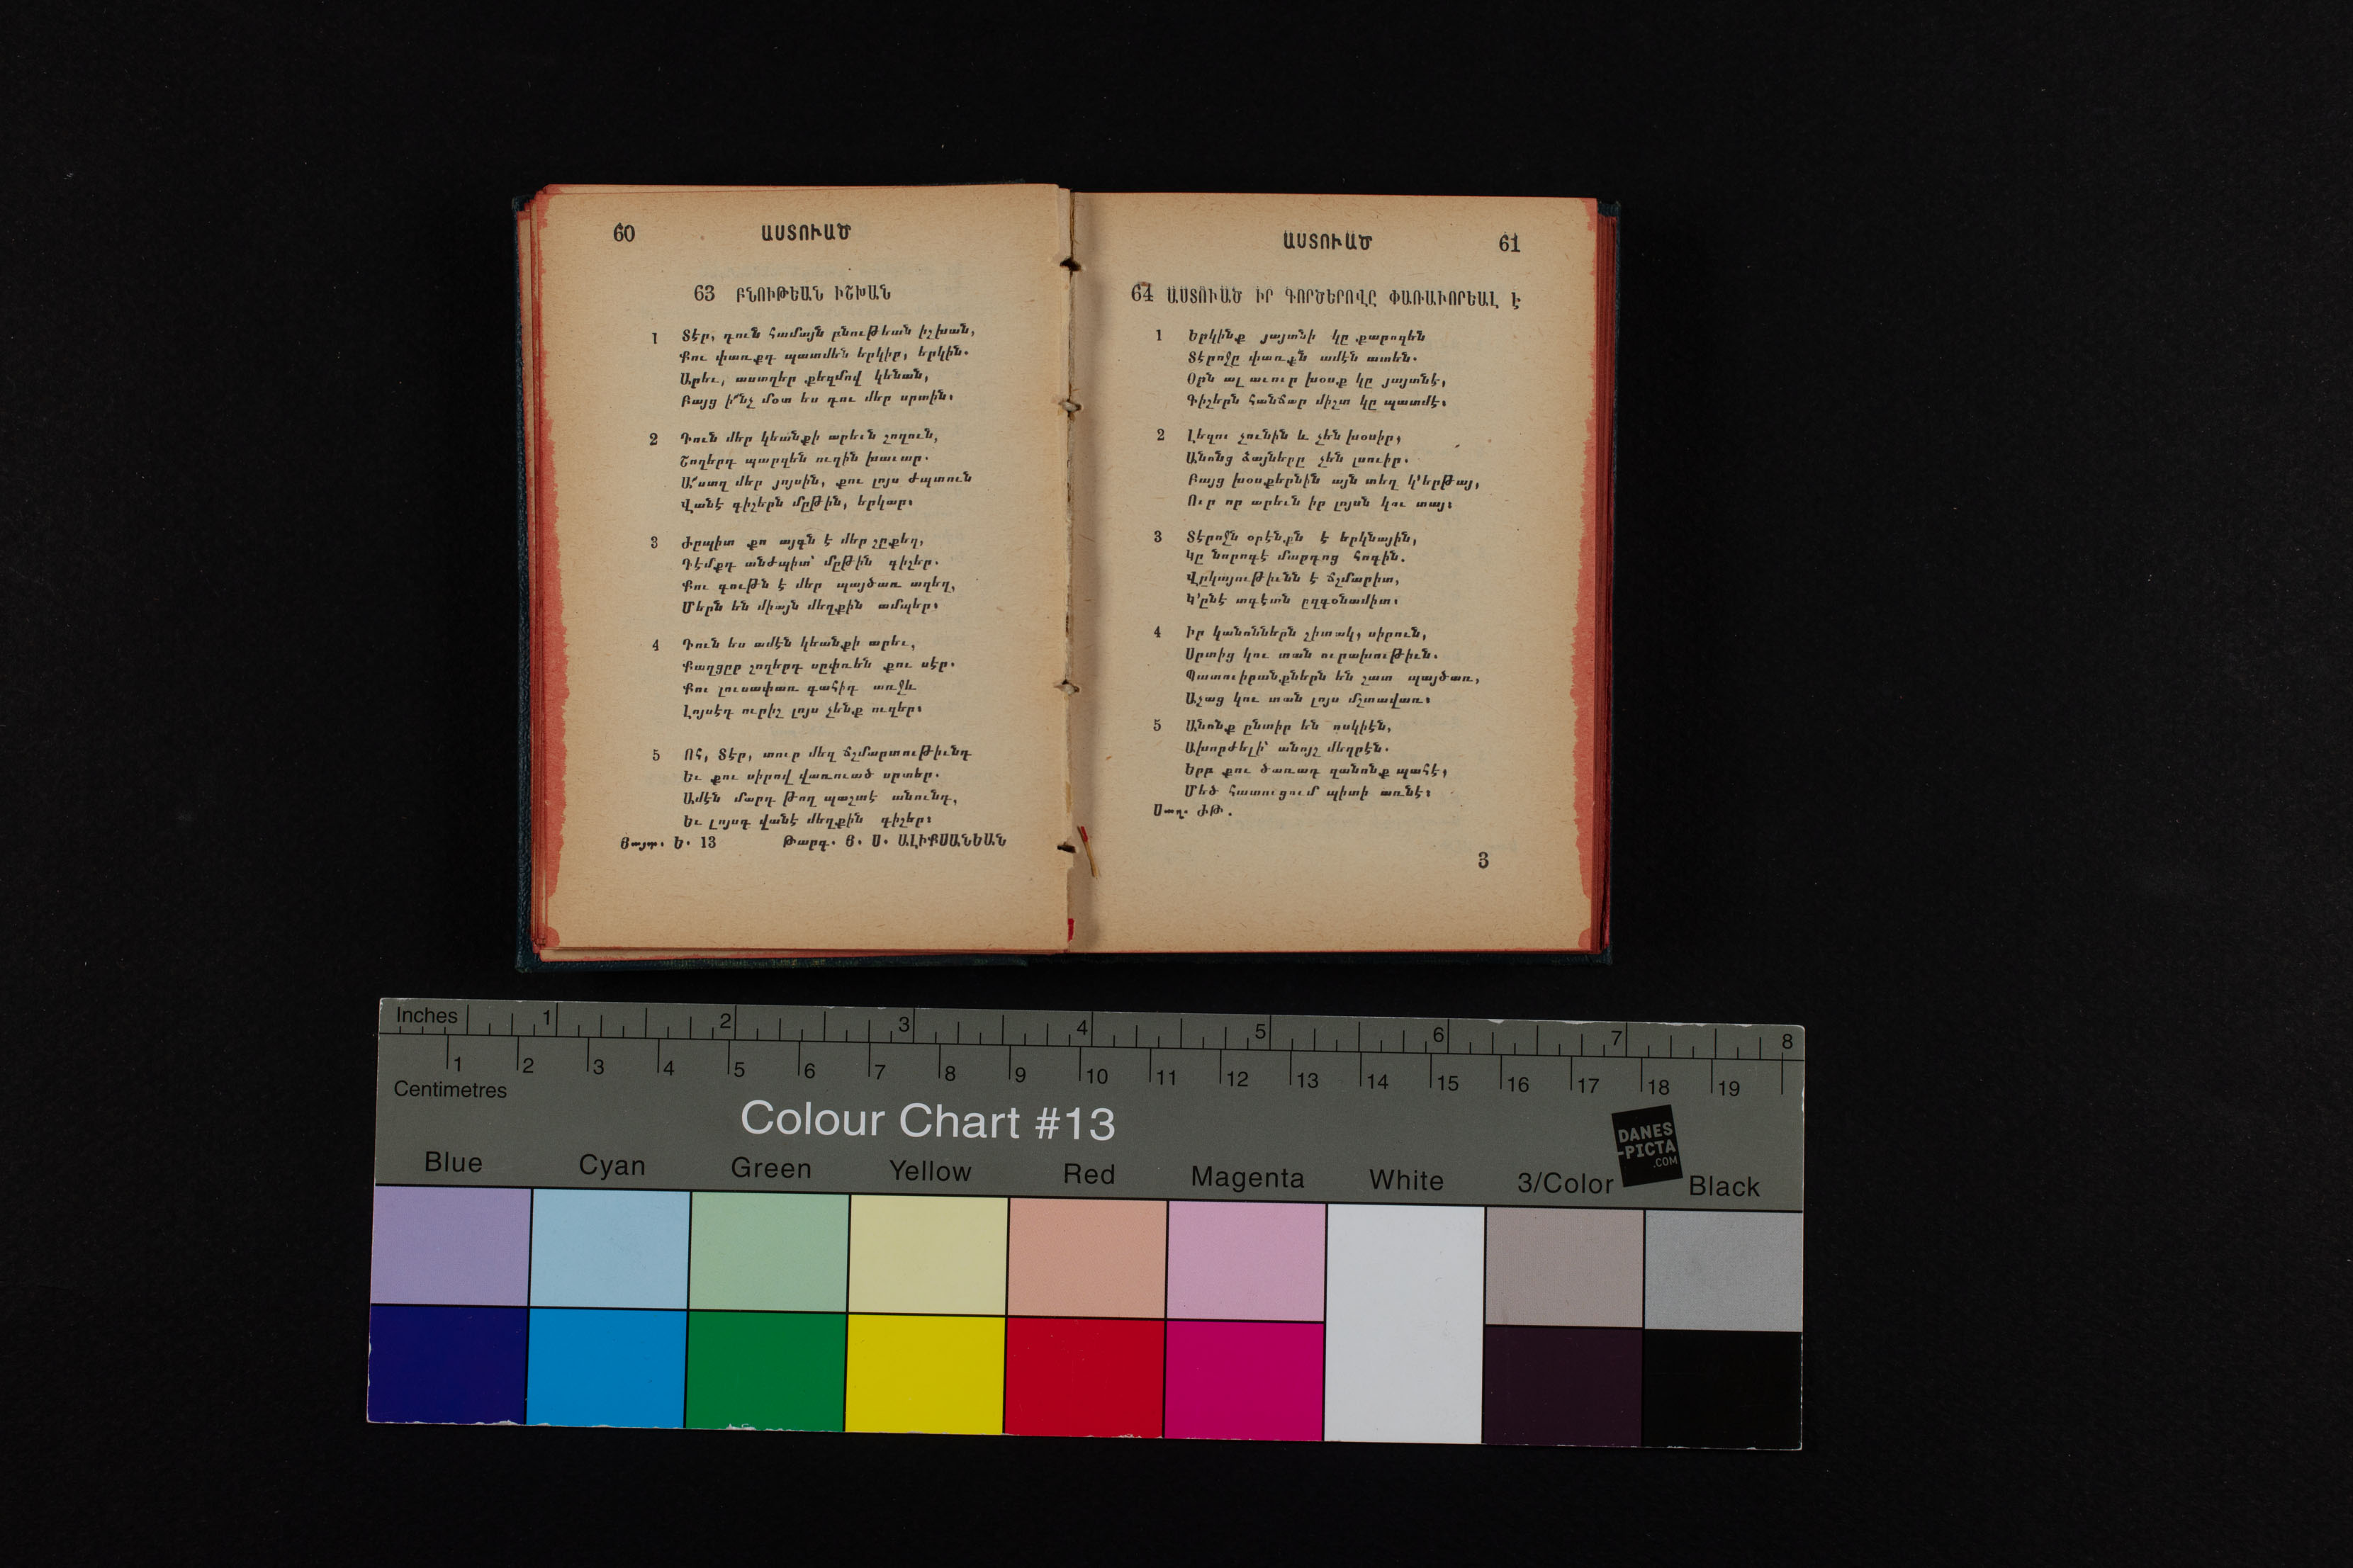 60 ԱՍՏՈՒԱԾ
63 ԲՆՈՒԹԵԱՆ ԻՇԽԱՆ
1 Տէր, դուն համայն բնութեան իշխան,
Քու փառքդ պատմեն երկիր, երկին.
Արեւ, աստղեր քեզմով կենան,
Բայց ի՞նչ մօտ ես դու մեր սրտին։
2 Դուն մեր կեանքի արեւն շողուն,
Շողերդ պարզեն ուղին խաւար.
Ա՛ստղ մեր յոյսին, քու լոյս ժպտուն
Վանէ գիշերն մըթին, երկար։
3 Ժըպիտ քո այգն է մեր շըքեղ,
Դէմքդ անժպիտ՝ մըթին գիշեր.
Քու գութն է մեր պայծառ աղեղ,
Մերն են միայն մեղքին ամպեր։
4 Դուն ես ամէն կեանքի արեւ,
Քաղցըր շողերդ սըփռեն քու սէր.
Քու լուսափառ գահիդ առջև
Լոյսէդ ուրիշ լոյս չենք ուզեր։
5 Ոհ, Տէր, տուր մեզ ճշմարտութիւնդ
Եւ քու սիրով վառուած սրտեր.
Ամէն մարդ թող պաշտէ անունդ,
Եւ լոյսդ վանէ մեղքին գիշեր։
Յայտ. Ե. 13 Թարգ. Յ. Ս. ԱԼԻՔՍԱՆԵԱՆ
ԱՍՏՈՒԱԾ 61
64 ԱՍՏՈՒԱԾ ԻՐ ԳՈՐԾԵՐՈՎԸ ՓԱՌԱՒՈՐԵԱԼ Է
1 Երկինք յայտնի կը քարոզեն
Տէրոջը փառքն ամէն ատեն.
Օրն ալ աւուր խօսք կը յայտնէ,
Գիշերն հանճար միշտ կը պատմէ։
2 Լեզու չունին և չեն խօսիր,
Անոնց ձայները չեն լսուիր.
Բայց խօսքերնին այն տեղ կ'երթայ,
Ուր որ արեւն իր լոյսն կու տայ։
3 Տէրոջն օրէնքն է երկնային,
Կը նորոգէ մարդոց հոգին.
Վըկայութիւնն է ճշմարիտ,
Կ'ընէ տգէտն ըզգօնամիտ։
4 Իր կանոններն շիտակ, սիրուն,
Սրտից կու տան ուրախութիւն.
Պատուիրանքներն են շատ պայծառ,
Աչաց կու տան լոյս մշտավառ։
5 Անոնք ընտիր են ոսկիէն,
Ախորժելի՝ անոյշ մեղրէն.
Երբ քու ծառադ զանոնք պահէ,
Մեծ հատուցում պիտի առնէ։
Սաղ. ԺԹ.
3
Inches 1 2 3 4 5 6 7 8
1 2 3 4 5 6 7 8 9 10 11 12 13 14 15 16 17 18 19
Centimetres
Colour Chart #13
DANES
-PICTA
.COM
Blue Cyan Green Yellow Red Magenta White 3/Color Black